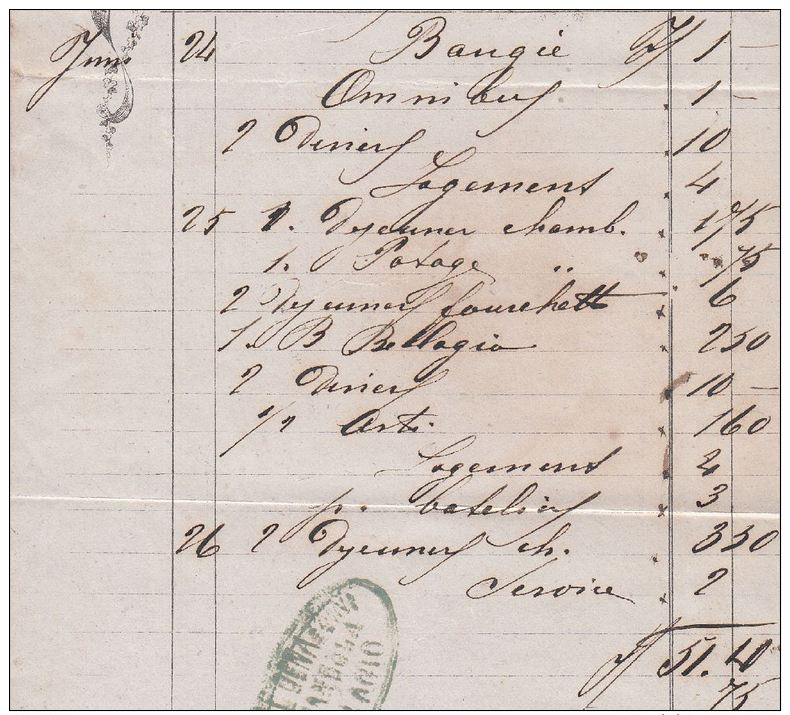 Juin 24 Bougie f 1 —
Omnibus " 1 —
2 Diners 10
Logement " 4
25 1. Dejeuner chamb. " 1,75
1. Potage " " " ,75
2 Dejeuners fourchett " 6
1. B Bellagio " 2 50
2 Diners " 10 —
1/2 Asti " 1 60
Logement " 4
p. bateliers " 3
26 2 Dejeuners ch. " 3 50
Service " 2
f 51. 40
75